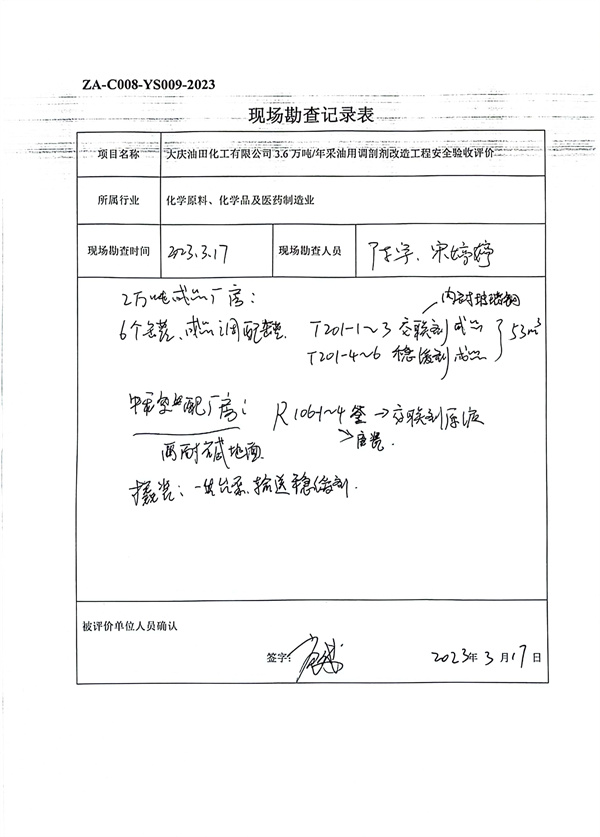 ZA-C008-YS009-2023
现场勘查记录表
项目名称 大庆油田化工有限公司3.6万吨/年采油用调剖剂改造工程安全验收评价
所属行业 化学原料、化学品及医药制造业
现场勘查时间 2023.3.17 现场勘查人员 宋婷婷
2万吨成品厂房:
内衬玻璃钢
6个 成品调配 T201-1~3 交联剂成品
T201-4~6 稳缓剂成品 } 53m³
配厂房: R106-1~4釜→交联剂原液
耐碱地面
撬装: 一 台泵.输送稳缓剂.
被评价单位人员确认
签字: 2023年3月17日